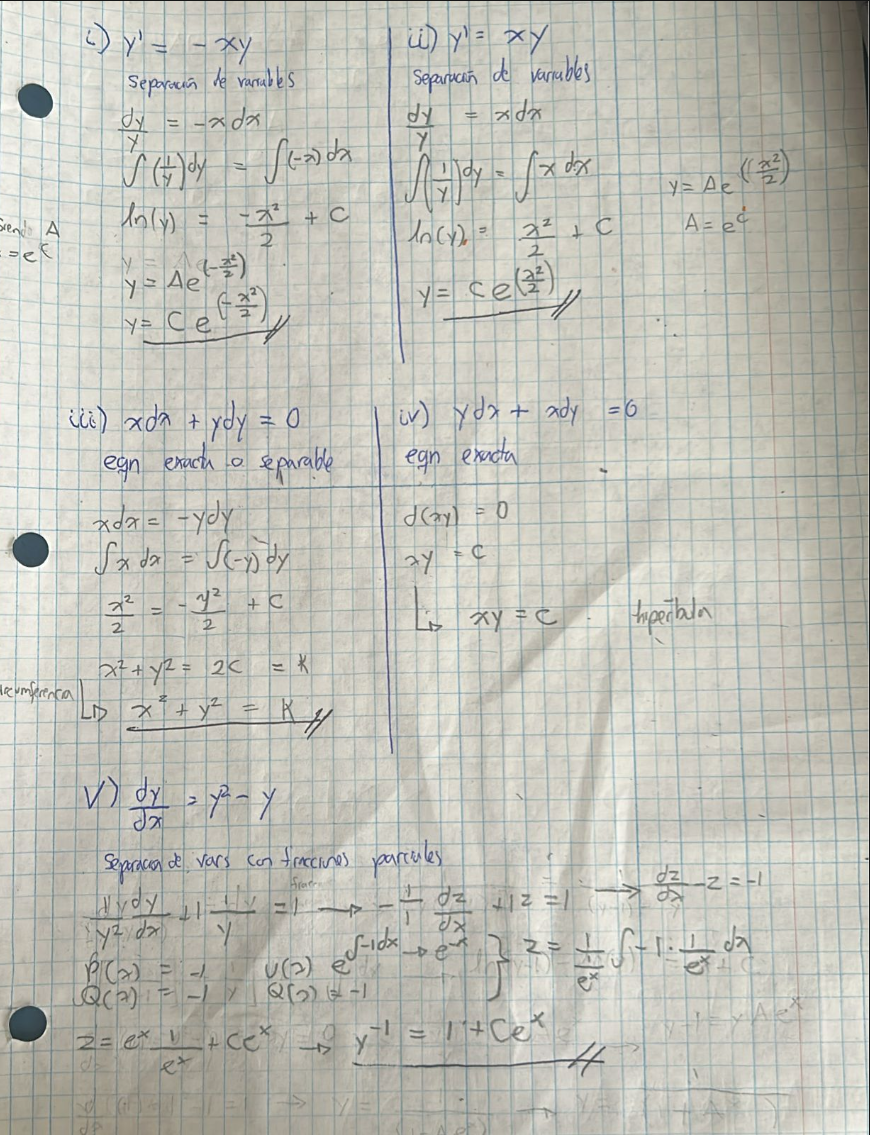 i) y' = - xy
Separación de variables
dy/y = -x dx
∫(1/y)dy = ∫(-x)dx
ln(y) = -x²/2 + C
A
= e^C
y = Ae^(-x²/2)
y = Ce^(-x²/2)
ii) y' = xy
Separación de variables
dy/y = x dx
∫(1/y)dy = ∫x dx
ln(y) = x²/2 + C
y = Ce^(x²/2)
y = Ae^(x²/2)
A = e^C
iii) xdx + ydy = 0
eqn exacta o separable
xdx = -ydy
∫x dx = ∫(-y)dy
x²/2 = -y²/2 + C
x² + y² = 2C = K
x² + y² = K
iv) ydx + xdy = 0
eqn exacta
d(xy) = 0
xy = C
xy = C hipérbola
V) dy/dx = y² - y
Separación de vars con fracciones parciales
+ 1 1/y = 1 → -1/1 dz/dx + 1z = 1 → dz/dx - z = -1
P(x) = -1 e^∫-1dx → e^-x } z = 1/(1/e^x) ∫-1 · 1/e^x dx
Q(x) = -1 Q(x) = -1
z = e^x 1/e^x + Ce^x → y^-1 = 1 + Ce^x